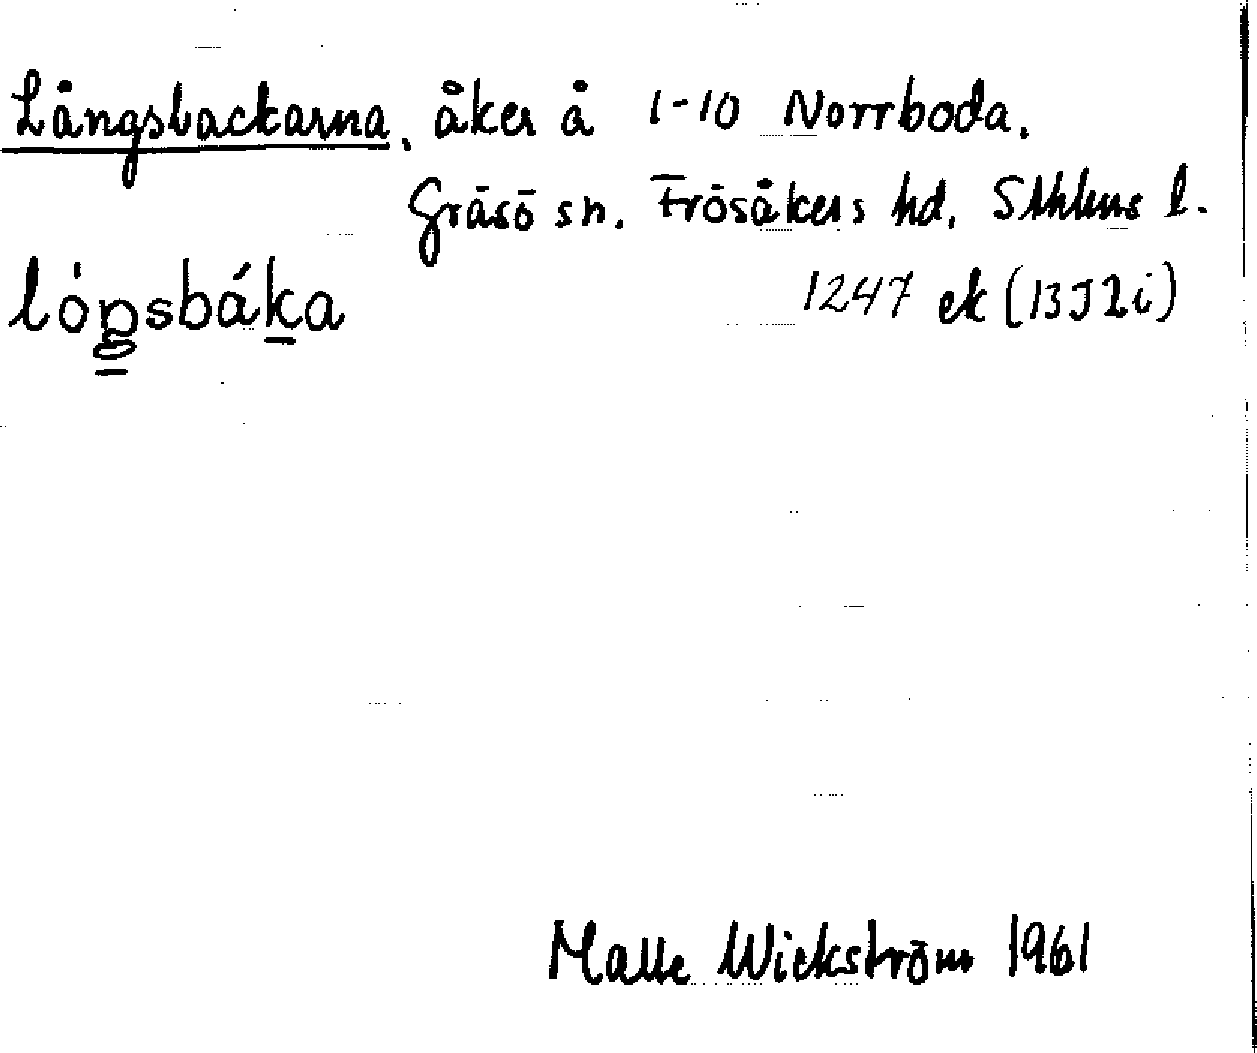 Långsbackarna, åker å 1-10 Norrboda.
Gräsö sn. Frösåkers hd. Sthlms l.
lóŋsbáka 1247 ek (13J2i)
Malle Wickström 1961